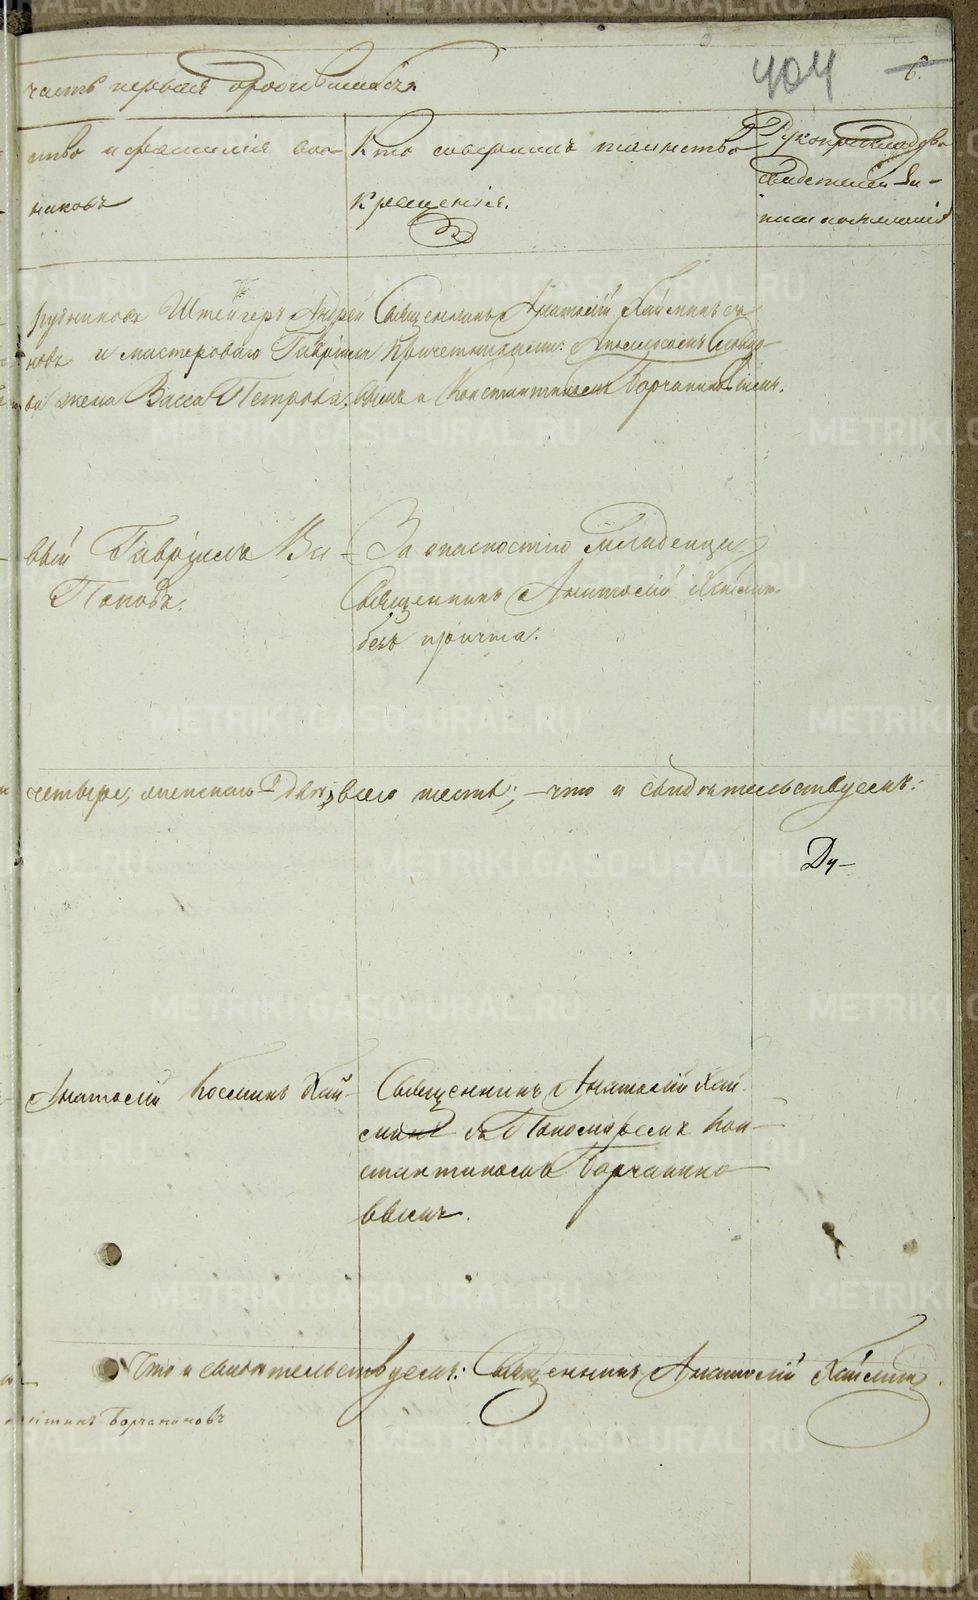 404 6.
часть первая о родившихся.
ство и фамилія вос-
никовъ
Кто совершалъ таинство
крещенія.
Рукоприкладство
свидетелей за-
писи по желанію
рудниковъ Штейгеръ Андрей
новъ и мастероваго Гавріила
ва жена Васса Петрова.
Священникъ Анатолій Хайминъ съ
Причетниками:
вымъ и Константиномъ Борчаниновымъ.
вый Гавріилъ Ва-
Поповъ.
За опасностію младенца
Священникъ Анатолій Хаймин
безъ причта.
четыре, женска двѣ, всего шесть; – что и свидѣтельствуемъ:
Ду-
Анатолій Косминъ Хай-
Священникъ Анатолій Хай-
минъ съ Пономаремъ Кон-
стантиномъ Борчанино-
вымъ.
Что и свидѣтельствуемъ: Священникъ Анатолій Хайминъ.
нтинъ Борчаниновъ
METRIKI.GASO-URAL.RU